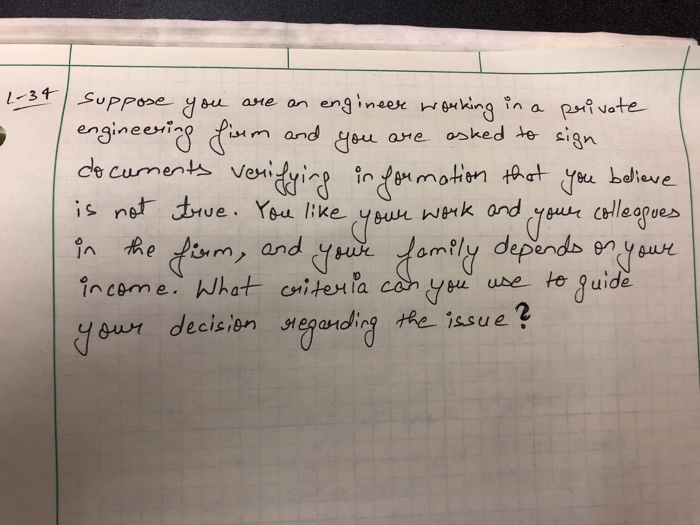 1.-34 Suppose you are an engineer working in a private
engineering firm and you are asked to sign
documents verifying information that you believe
is not true. You like your work and your colleagues
in the firm, and your family depends on your
income. What criteria can you use to guide
your decision regarding the issue?